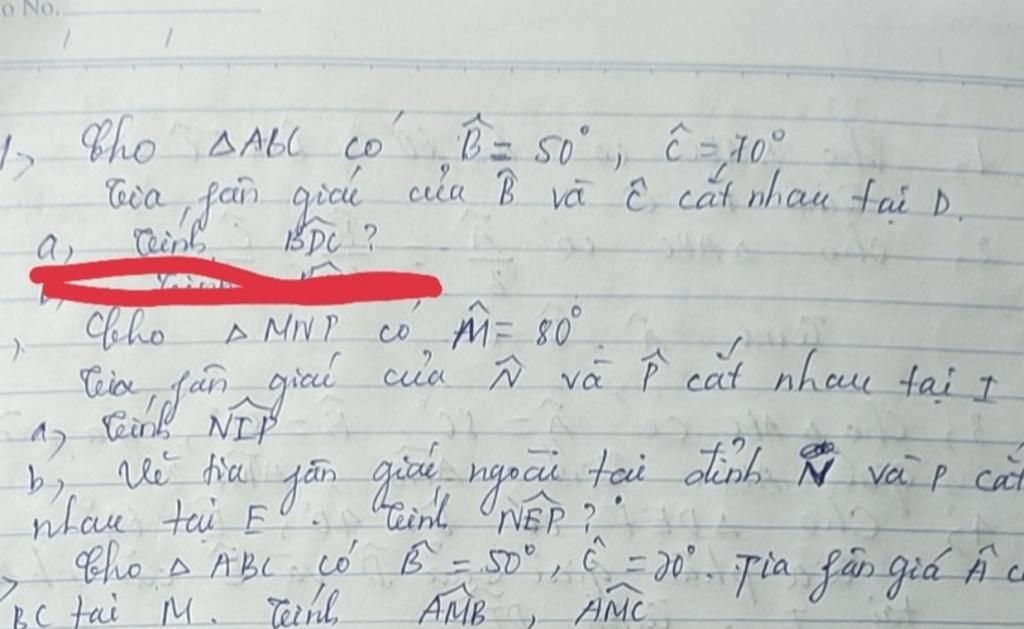 o No.
1> Cho △ABC có B̂ = 50°, Ĉ = 70°
Tia fân giác của B̂ và Ĉ cắt nhau tại D.
a, Tính BDC?
Cho △MNP có M̂ = 80°
Tia fân giác của N̂ và P̂ cắt nhau tại I
a, Tính NIP
b, Vẽ tia fân giác ngoài tại đỉnh N và P cắt
nhau tại E. Tính NEP?
Cho △ABC có B̂ = 50°, Ĉ = 20°. Tia fân giá Â c
BC tại M. Tính AMB, AMC